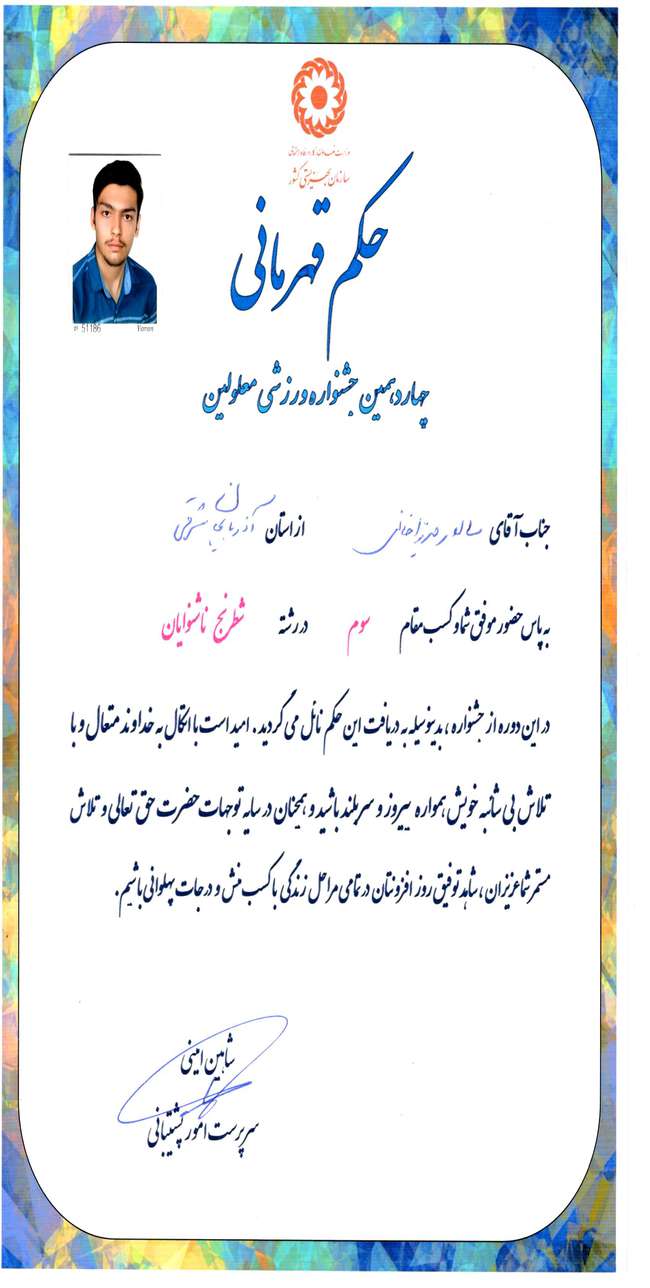 سازمان بهزیستی کشور
حکم قهرمانی
چهاردهمین جشنواره ورزشی معلولین
51186
جناب آقای میرزاخانی از استان آذربایجان شرقی
به پاس حضور موفق شما و کسب مقام سوم در رشته شطرنج ناشنوایان
در این دوره از جشنواره، بدینوسیله به دریافت این حکم نائل می گردید. امید است با اتکال به خداوند متعال و با
تلاش بی شائبه خویش همواره پیروز و سربلند باشید و همچنان در سایه توجهات حضرت حق تعالی و تلاش
مستمر شما عزیزان، شاهد توفیق روز افزونتان در تمامی مراحل زندگی با کسب منش و درجات پهلوانی باشیم.
شاهین امینی
سرپرست امور پشتیبانی